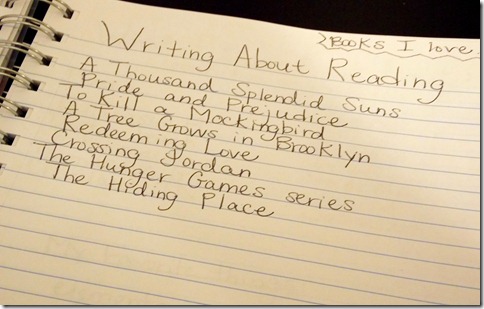 Books I love
Writing About Reading
A Thousand Splendid Suns
Pride and Prejudice
To Kill a Mockingbird
A Tree Grows in Brooklyn
Redeeming Love
Crossing Jordan
The Hunger Games series
The Hiding Place